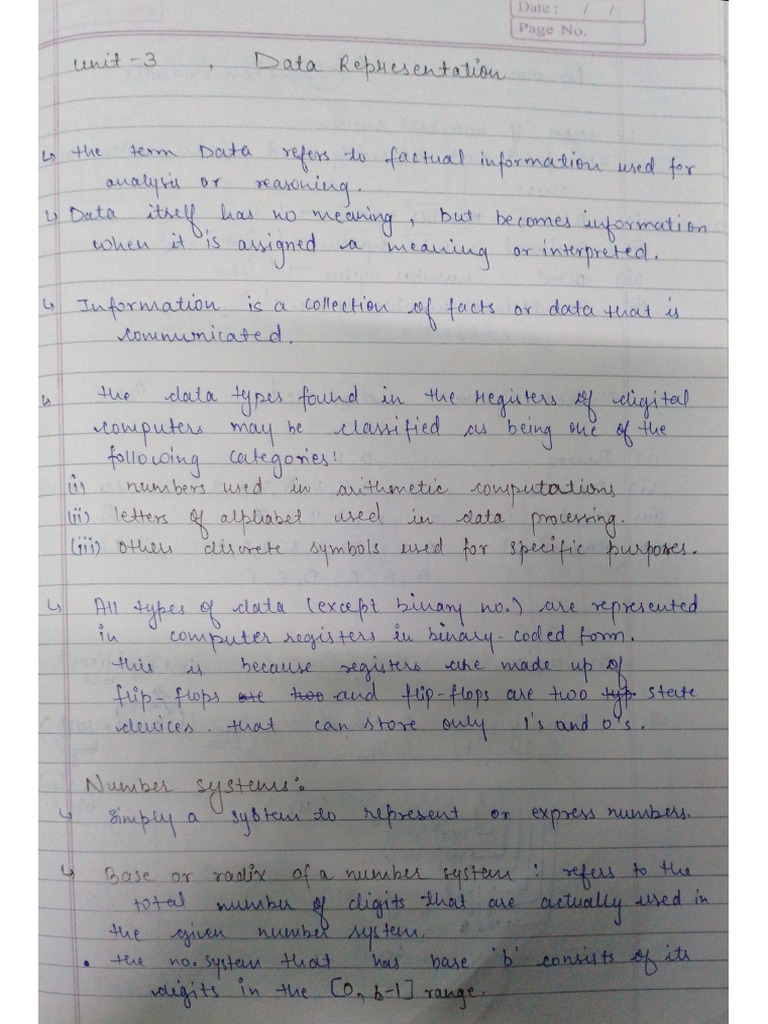 Date : / /
Page No.
Unit - 3 . Data Representation
↳ the term Data refers to factual information used for
analysis or reasoning.
↳ Data itself has no meaning, but becomes information
when it is assigned a meaning or interpreted.
↳ Information is a collection of facts or data that is
communicated.
↳ the data types found in the registers of digital
computers may be classified as being one of the
following categories:
(i) numbers used in arithmetic computations
(ii) letters of alphabet used in data processing.
(iii) others discrete symbols used for specific purposes.
↳ All types of data (except binary no.) are represented
in computer registers in binary-coded form.
this is because registers are made up of
flip-flops are two and flip-flops are two typ. state
devices. that can store only 1's and 0's.
Number systems:
↳ Simply a system to represent or express numbers.
↳ Base or radix of a number system : refers to the
total number of digits that are actually used in
the given number system.
• the no. system that has base 'b' consists of its
digits in the [0, b-1] range.